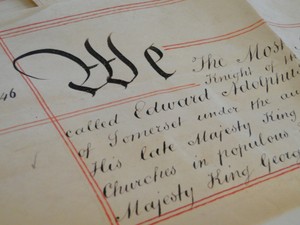 We The Most
Knight of th
46
called Edward Adolphu
of Somerset under the au
His late Majesty King
Churches in populous
Majesty King Georg